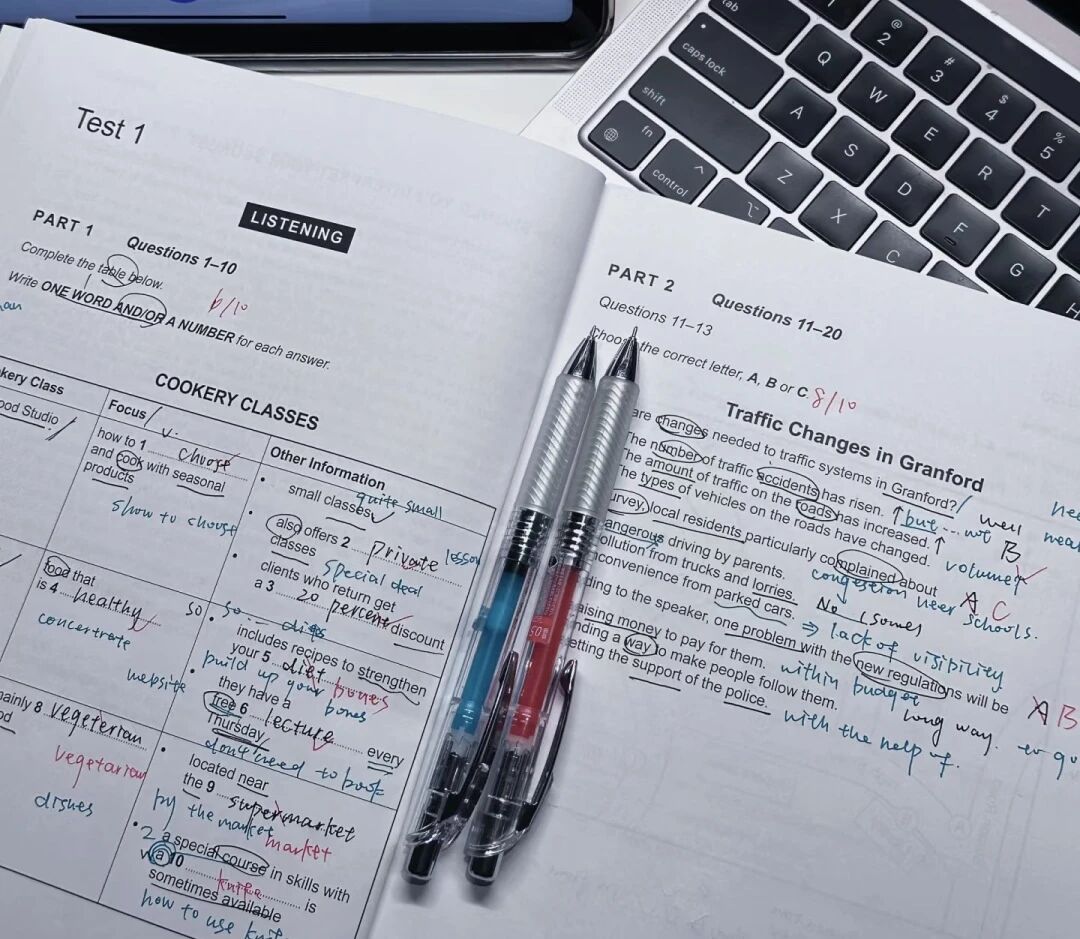 Test 1
LISTENING
PART 1 Questions 1–10
Complete the table below.
Write ONE WORD AND/OR A NUMBER for each answer.
6/10
COOKERY CLASSES
kery Class
Focus
Other Information
ood Studio
v.
how to 1 choose
and cook with seasonal
products
show to choose
small classes
quite small
also offers 2 private lesson
classes
special deal
clients who return get
a 3 20 percent discount
food that
is 4 healthy
concertrate
so
so
includes recipes to strengthen
your 5 diet bones
build up your bones
they have a
free 6 lecture every
Thursday
don't need to book
website
ainly 8 vegeterian
od
vegetarian
dishes
located near
the 9 supermarket
by the market market
2 a special course in skills with
a 10 knife is
sometimes available
how to use
PART 2 Questions 11–20
Questions 11–13
Choose the correct letter, A, B or C.
8/10
Traffic Changes in Granford
are changes needed to traffic systems in Granford?
The number of traffic accidents has risen.
well
The amount of traffic on the roads has increased.
but not B
The types of vehicles on the roads have changed.
volume
urvey, local residents particularly complained about
congestion near A C
schools.
angerous driving by parents.
ollution from trucks and lorries.
No (some)
convenience from parked cars.
lack of visibility
ding to the speaker, one problem with the new regulations will be
A B
aising money to pay for them.
within budget
nding a way to make people follow them.
long way.
etting the support of the police.
with the help of.
tab
caps lock
shift
fn
control
Q
W
E
R
T
A
S
D
F
G
H
Z
X
C
@
2
#
3
$
4
%
5